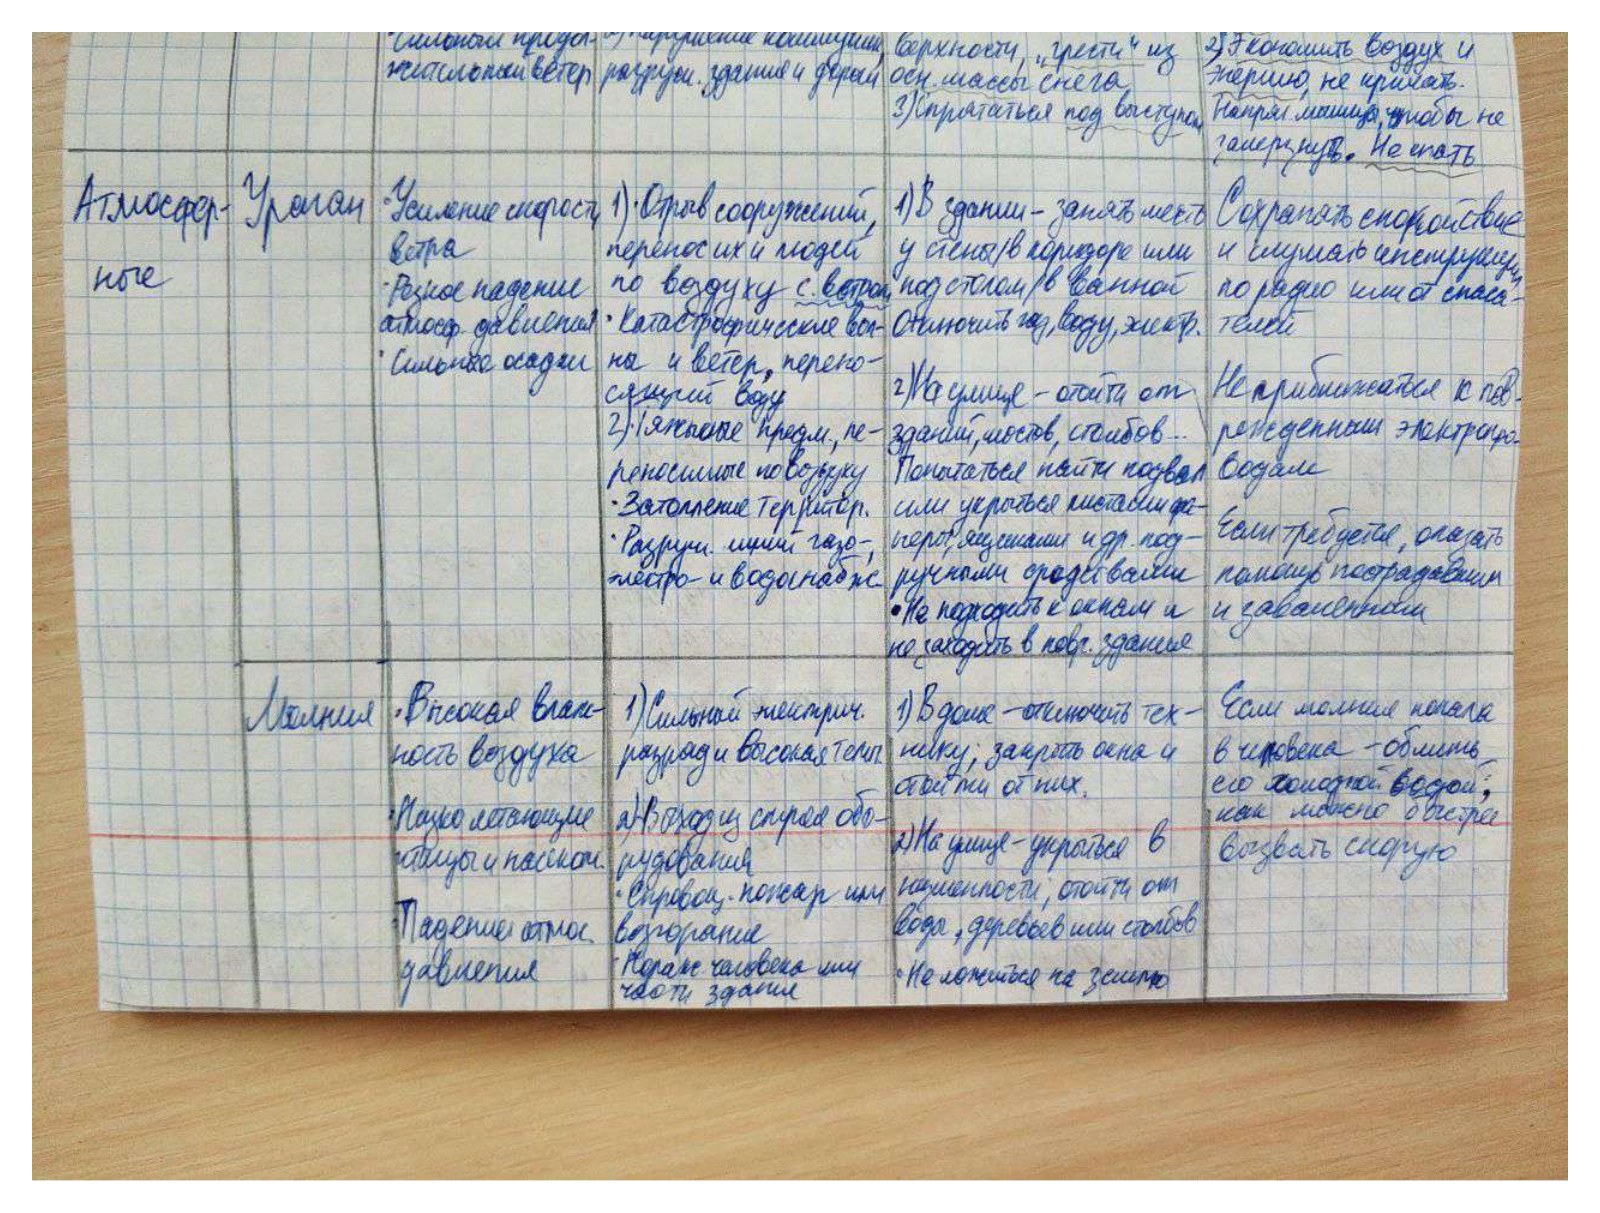 · Сильный продол-
жительный ветер
2) Нарушение коммуник,
разруш. здания и дорог
верхности, „грести" из
осн. массы снега
3) Спрятаться под выступом
2) Экономить воздух и
энергию, не кричать.
Напряг. мышцы, чтобы не
замерзнуть. Не спать
Атмосфер-
ные
Ураган
· Усиление скорости
ветра
· Резкое падение
атмосф. давления
· Сильные осадки
1) · Отрыв сооружений,
перенос их и людей
по воздуху с ветром
· Катастрофические вол-
ны и ветер, перено-
сящий воду
2) · Тяжелые предм., пе-
реносимые по воздуху
· Затопление территор.
· Разруш. линий газо-,
электро- и водоснабж
1) В здании – занять место
у стены/в коридоре или
под столом/в ванной
Отключить газ, воду, электр.
2) На улице – отойти от
зданий, мостов, столбов...
Попытаться найти подвал
или укрыться листами фа-
неры, ящиками и др. под-
ручными средствами
• Не подходить к окнам и
не заходить в повр. здания
Сохранять спокойствие
и слушать инструкции
по радио или от спаса-
телей
Не приближаться к пов-
режденным электропро-
водам
Если требуется, оказать
помощь пострадавшим
и заваленным
Молния
· Высокая влаж-
ность воздуха
· Низко летающие
птицы и насеком.
· Падение атмос.
давления
1) Сильный электрич.
разряд и высокая темп.
2) · Выход из строя обо-
рудования
· Спровоц. пожар или
возгорание
· Пораж. человека или
части здания
1) В доме – отключить тех-
нику; закрыть окна и
отойти от них.
2) На улице – укрыться в
низменности, отойти от
воды, деревьев или столбов
· Не ложиться на землю
Если молния попала
в человека – облить
его холодной водой;
как можно быстрее
вызвать скорую